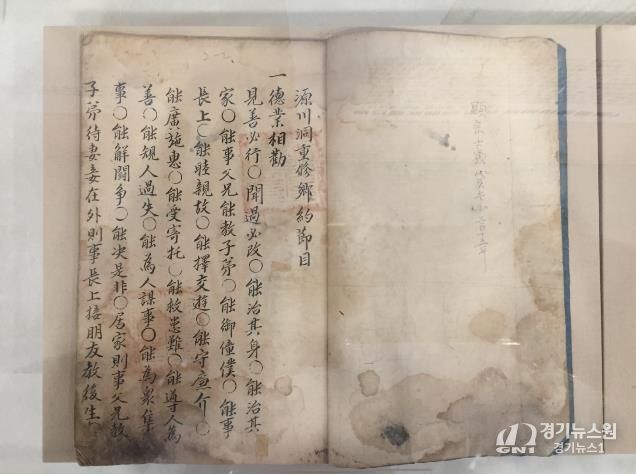 源川洞重修鄕約節目
一德業相勸
見善必行○聞過必改○能治其身○能治其
家○能事父兄能敎子弟○能御僮僕○能事
長上○能睦親故○能擇交遊○能守廉介○
能廣施惠○能受寄托○能救患難○能導人爲
善○能規人過失○能爲人謀事○能爲衆集
事○能解鬪爭○能決是非○居家則事父兄敎
子弟待妻妾在外則事長上接朋友敎後生
경기뉴스원
GN1
경기뉴스1